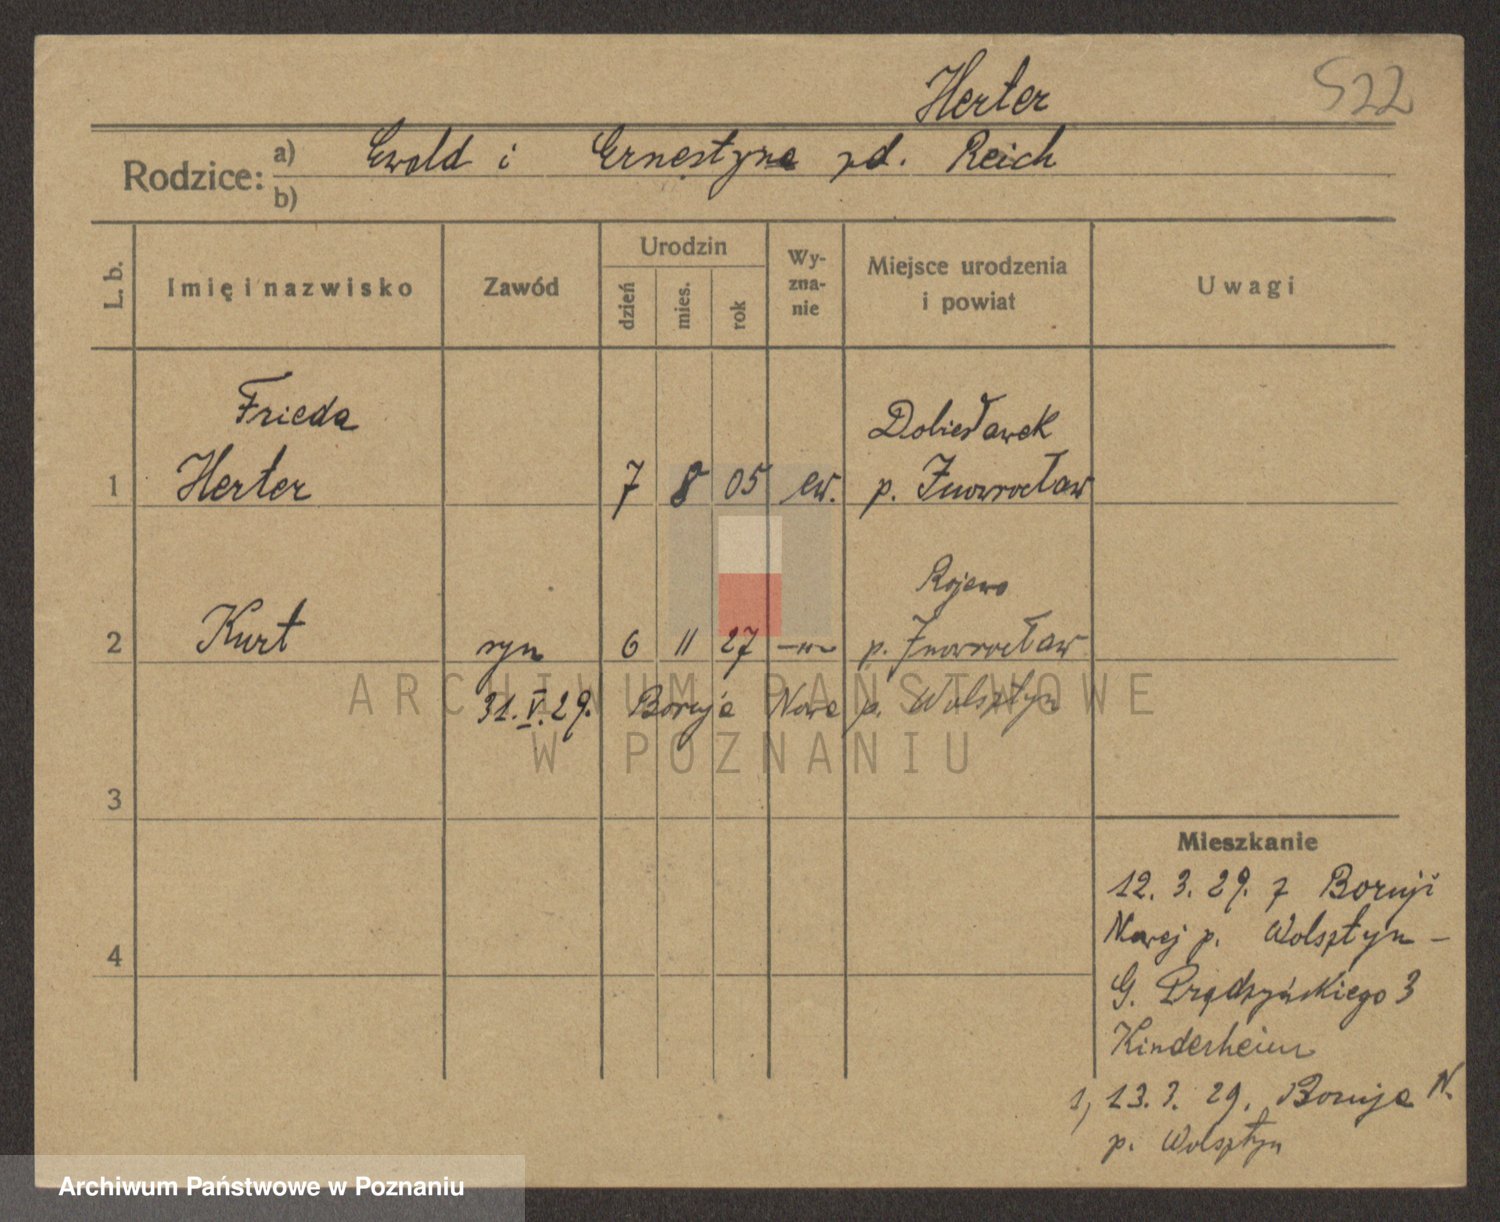 Herter
522
Rodzice: a) Ewald i Ernestyna zd. Reich
b)
L. b.
Imię i nazwisko
Zawód
Urodzin
dzień
mies.
rok
Wy-
zna-
nie
Miejsce urodzenia
i powiat
Uwagi
Frieda
Dobiesławek
1 Herter 7 8 05 ew. p. Inowrocław
Rojewo
2 Kurt syn 6 11 27 -„- p. Inowrocław
31.V.29. Boruja Nowa p. Wolsztyn
3
4
Mieszkanie
12. 3. 29. z Boruji
Nowej p. Wolsztyn -
G. Prądzyńskiego 3
Kinderheim
1, 13. 3. 29. Boruja N.
p. Wolsztyn
ARCHIWUM PAŃSTWOWE
W POZNANIU
Archiwum Państwowe w Poznaniu